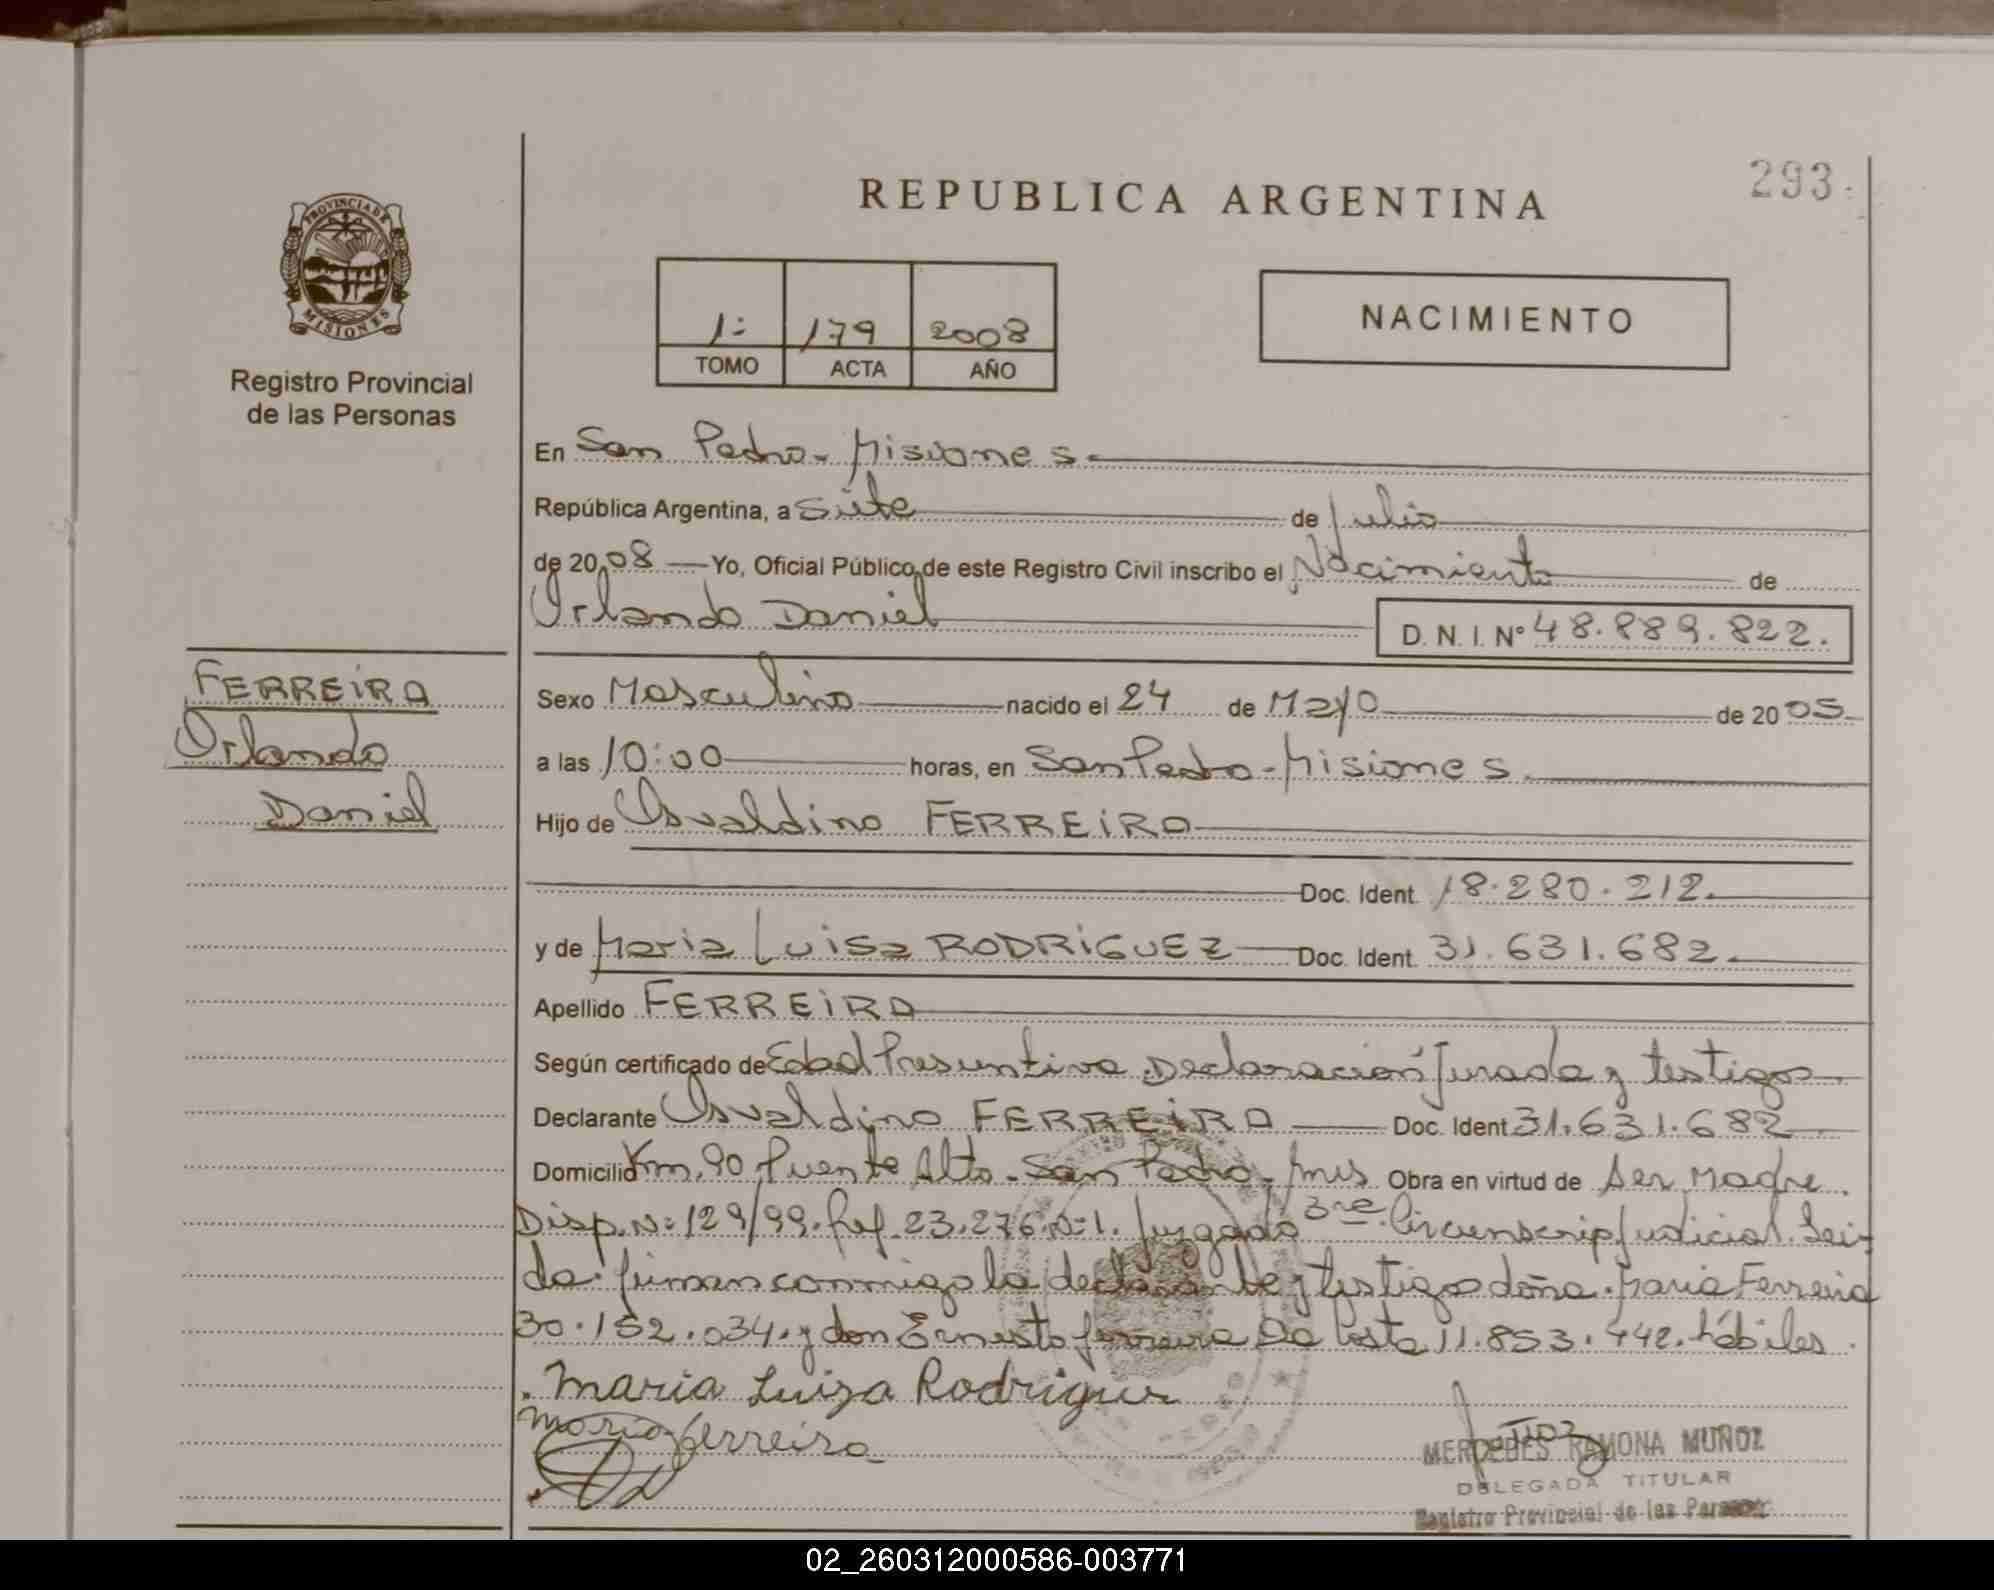 REPUBLICA ARGENTINA
293
PROVINCIA DE
MISIONES
Registro Provincial
de las Personas
1º 179 2008
TOMO ACTA AÑO
NACIMIENTO
En San Pedro - Misiones
República Argentina, a Siete de Julio
de 2008 Yo, Oficial Público de este Registro Civil inscribo el Nacimiento de
Orlando Daniel
D. N. I. Nº 48.889.822.
FERREIRA
Orlando
Daniel
Sexo Masculino nacido el 24 de Mayo de 2005
a las 10:00 horas, en San Pedro - Misiones
Hijo de Osvaldino FERREIRA
Doc. Ident. 18.280.212.
y de Maria Luisa RODRIGUEZ Doc. Ident. 31.631.682.
Apellido FERREIRA
Según certificado de Edad Presuntiva Declaración Jurada y testigos
Declarante Osvaldino FERREIRA Doc. Ident 31.631.682
Domicilio Km. 90 Puente Alto - San Pedro - Mis Obra en virtud de Ser Madre.
Disp. Nº 129/99. Ref. 23.276 Nº 1. Juzgado 3ra Circunscrip Judicial. Lei-
da. firman conmigo la declarante y testigo doña Maria Ferreira
30.152.034. y don Ernesto Ferreira Da Costa 11.853.442. hábiles.
Maria Luiza Rodriguez
Maria Ferreira
MERCEDES RAMONA MUÑOZ
DELEGADA TITULAR
Registro Provincial de las Personas
02_260312000586-003771